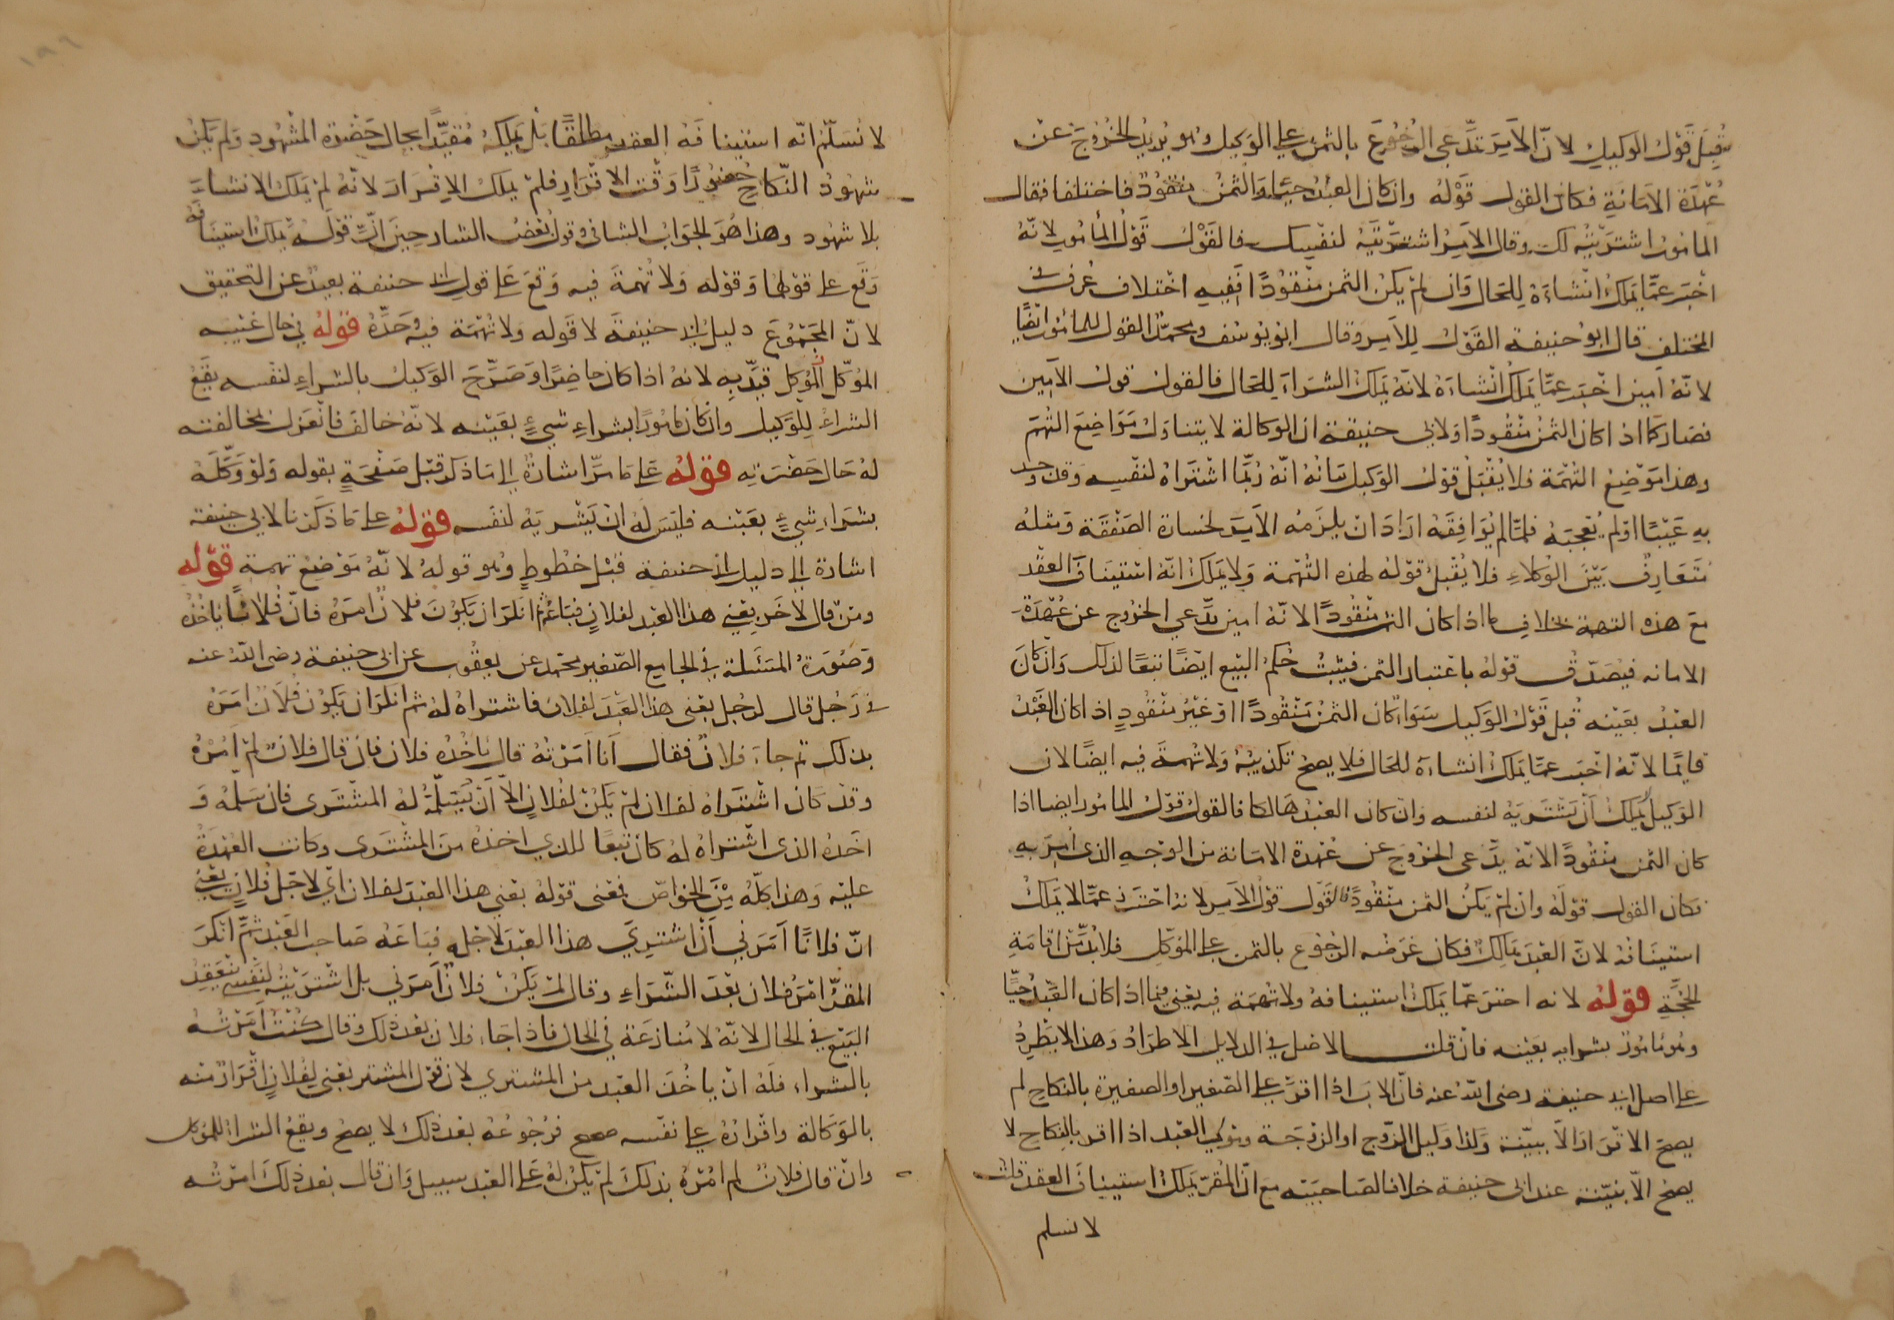 يقبل قول الوكيل لان الآمر يدعى الرجوع بالثمن على الوكيل وهو يريد الخروج عن
عهدة الامانة فكان القول قوله وان كان العبد حيا والثمن منقود فاختلفا فقال
المامور اشتريته لك وقال الآمر اشتريته لنفسك فالقول قول المأمور لانه
اخبر عما يملك انشاءه للحال وان لم يكن الثمن منقودا ففيه اختلاف عرف في
المختلف قال ابو حنيفة القول للآمر وقال ابو يوسف ومحمد القول للمامور ايضا
لانه امين اخبر عما يملك انشاءه لانه يملك الشراء للحال فالقول قول الامين
فصار كما اذا كان الثمن منقودا ولابي حنيفة ان الوكالة لا يتناول مواضع التهم
وهذا موضع التهمة فلا يقبل قول الوكيل بيانه انه ربما اشتراه لنفسه وقد وجد
به عيبا او لم يعجبه فلما لم يوافقه اراد ان يلزمه الآمر لخسارة الصفقة ومثله
متعارف بين الوكلاء فلا يقبل قوله لهذه التهمة ولا يملك انه استيناف العقد
مع هذه التهمة بخلاف ما اذا كان الثمن منقودا لانه امين يدعي الخروج عن عهدة
الامانه فيصدق قوله باعتبار الثمن فيثبت حكم البيع ايضا تبعا لذلك وان كان
العبد بعينه قبل قول الوكيل سواء كان الثمن منقودا او غير منقود اذا كان العبد
قايما لانه اخبر عما يملك انشاءه للحال فلا يصح تكذيبه ولا تهمة فيه ايضا لان
الوكيل لا يملك ان يشتريه لنفسه وان كان العبد هالكا فالقول قول المامور ايضا اذا
كان الثمن منقودا لانه يدعى الخروج عن عهدة الامانة من الوجه الذي امر به
فكان القول قوله وان لم يكن الثمن منقودا فالقول قول الآمر لانه اخبر عما لا يملك
استينافه لان العبد هالك فكان غرضه الرجوع بالثمن على الموكل فلا بد من اقامة
الحجة قوله لانه اخبر عما يملك استينافه ولا تهمة فيه يعني فيما اذا كان العبد حيا
وهو مامور بشرايه بعينه فان قلت الاصل في الدلايل الاطراد وهذا لا يطرد
على اصل ابي حنيفة رضى الله عنه فان الاب اذا اقر على الصغير او الصغيرة بالنكاح لم
يصح الاقرار الا ببينة وكذا وكيل الزوج او الزوجة ومولى العبد اذا اقر بالنكاح لا
يصح الا ببينة عند ابى حنيفة خلافا لصاحبيه مع ان المقر يملك استيناف العقد قلت
لا نسلم
لا نسلم انه استينافه العقد مطلقا بل يملكه مقيدا بحال حضرة الشهود ولم يكن
شهود النكاح حضورا وقت الاقرار فلم يملك الاقرار لانه لم يملك الانشاء
بلا شهود وهذا هو الجواب الشافى وقول بعض الشارحين ان قوله يملك استينافه
وقع على قولهما وقوله ولا تهمة فيه وقع على قول ابي حنيفة بعيد عن التحقيق
لان المجموع دليل ابي حنيفة لا قوله ولا تهمة فيه وحده قوله في حال غيبة
الموكل انما قيد به لانه اذا كان حاضرا وصرح الوكيل بالشراء لنفسه يقع
الشراء للوكيل وان كان مامورا بشراء شيء بعينه لانه خالف فانعزل بمخالفته
له حال حضرته قوله على ما مر اشارة الى ما ذكر قبل صفحة بقوله ولو وكله
بشراء شيء بعينه فليس له ان يشتريه لنفسه قوله على ما ذكرنا لابي حنيفة
اشارة الى دليل ابي حنيفة قبل خطوط وهو قوله لانه موضع تهمة قوله
ومن قال لآخر بعني هذا العبد لفلان فباعه ثم انكر ان يكون فلان امره فان فلانا ياخذه
وصورة المسئلة في الجامع الصغير محمد عن يعقوب عن ابي حنيفة رضى الله عنه
في رجل قال لرجل بعني هذا العبد لفلان فاشتراه له ثم انكر ان يكون فلان امره
بذلك ثم جاء فلان فقال انا امرته قال ياخذه فلان فان قال فلان لم آمره
وقد كان اشتراه لفلان لم يكن لفلان الا ان يسلمه له المشترى فان سلمه و
اخذه الذى اشتراه له كان بيعا للذي اخذه من المشترى وكانت العهدة
عليه وهذا كله من الخواص فمعنى قوله بعني هذا العبد لفلان اي لاجل فلان يعني
ان فلانا امرني ان اشتري هذا العبد لاجله فباعه صاحب العبد ثم انكر
المقر امر فلان بعد الشراء وقال لم يكن فلان امرني بل اشتريته لنفسي ينعقد
البيع في الحال لانه لا منازعة في الحال فاذا جاء فلان بعد ذلك وقال كنت امرته
بالشراء فله ان ياخذ العبد من المشتري لان قول المشتر بعني لفلان اقرار منه
بالوكالة واقراره على نفسه صحيح فرجوعه بعد ذلك لا يصح ويقع الشراء للموكل
وان قال فلان لم آمره بذلك لم يكن له على العبد سبيل وان قال بعد ذلك امرته